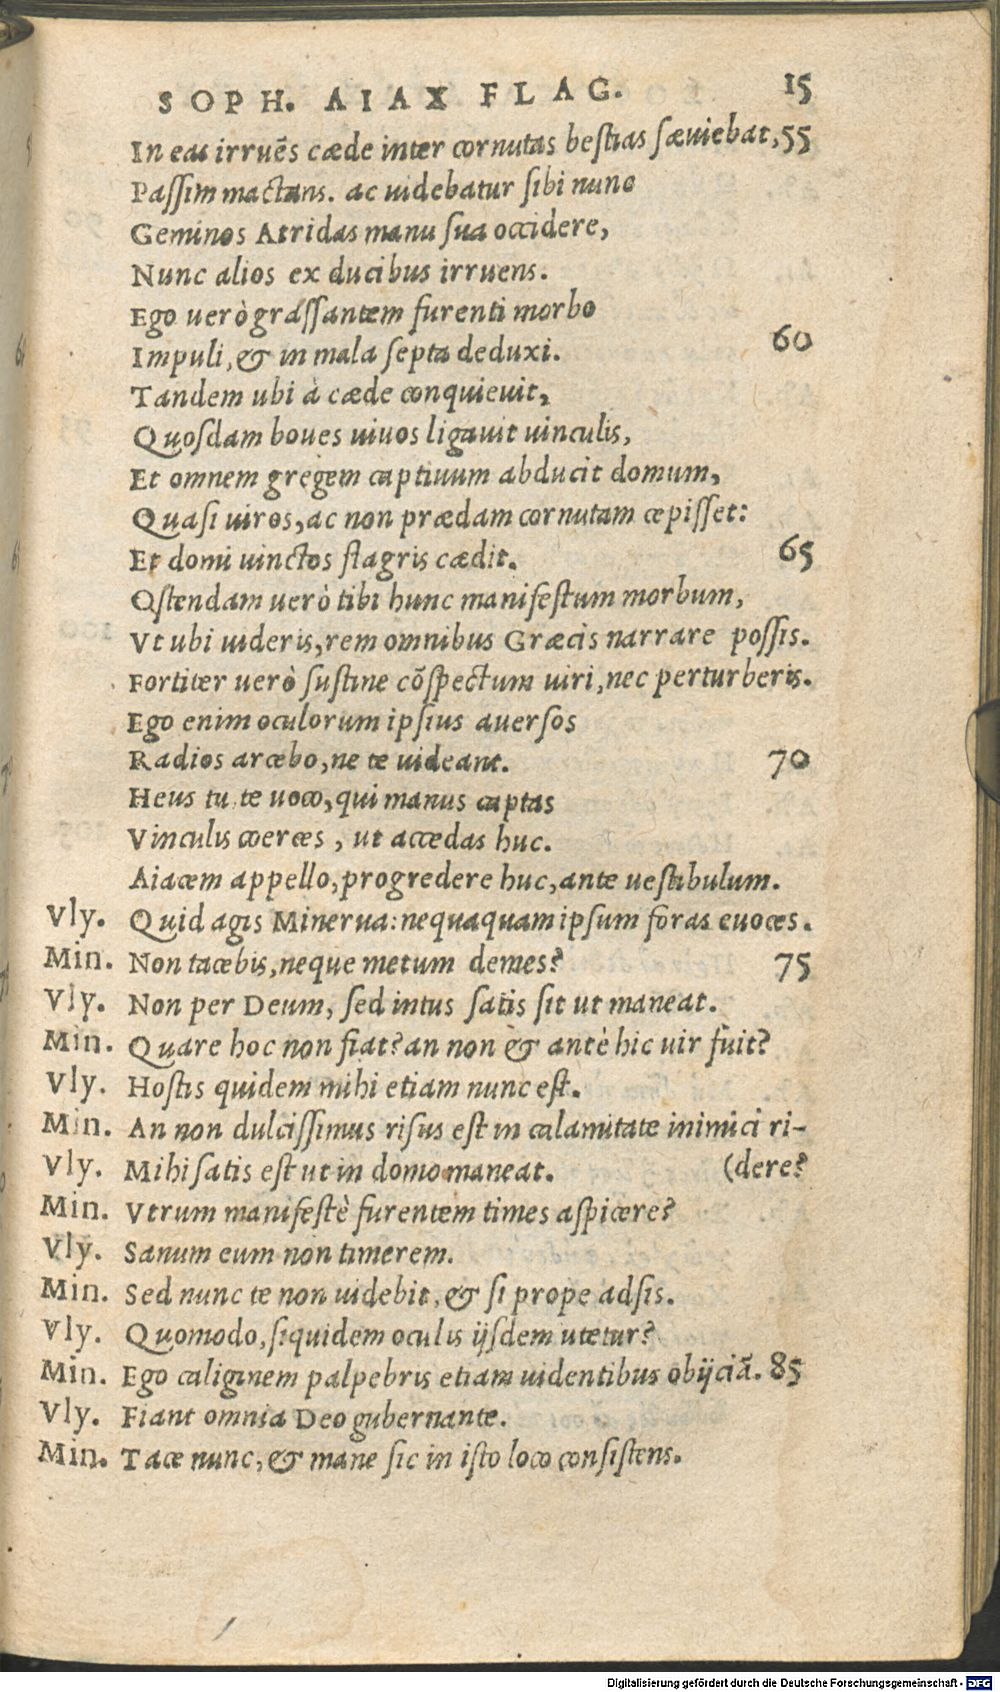 SOPH. AIAX FLAG. 15
In eas irruēs cæde inter cornutas bestias sæuiebat, 55
Passim mactans. ac uidebatur sibi nunc
Geminos Atridas manu sua occidere,
Nunc alios ex ducibus irruens.
Ego uerò grassantem furenti morbo
Impuli, & in mala septa deduxi. 60
Tandem ubi à cæde conquieuit,
Quosdam boues uiuos ligauit uinculis,
Et omnem gregem captiuum abducit domum,
Quasi uiros, ac non prædam cornutam cepisset:
Et domi uinctos flagris cædit. 65
Ostendam uerò tibi hunc manifestum morbum,
Vt ubi uideris, rem omnibus Græcis narrare possis.
Fortiter uerò sustine cōspectum uiri, nec perturberis.
Ego enim oculorum ipsius auersos
Radios arcebo, ne te uideant. 70
Heus tu, te uoco, qui manus captas
Vinculis coerces, ut accedas huc.
Aiacem appello, progredere huc, ante uestibulum.
Vly. Quid agis Minerua: nequaquam ipsum foras euoces.
Min. Non tacebis, neque metum demes? 75
Vly. Non per Deum, sed intus satis sit ut maneat.
Min. Quare hoc non fiat? an non & antè hic uir fuit?
Vly. Hostis quidem mihi etiam nunc est.
Min. An non dulcissimus risus est in calamitate inimici ri-
Vly. Mihi satis est ut in domo maneat. (dere?
Min. Vtrum manifestè furentem times aspicere?
Vly. Sanum eum non timerem.
Min. Sed nunc te non uidebit, & si prope adsis.
Vly. Quomodo, siquidem oculis ijsdem utetur?
Min. Ego caliginem palpebris etiam uidentibus obijciā. 85
Vly. Fiant omnia Deo gubernante.
Min. Tace nunc, & mane sic in isto loco consistens.
Digitalisierung gefördert durch die Deutsche Forschungsgemeinschaft - DFG